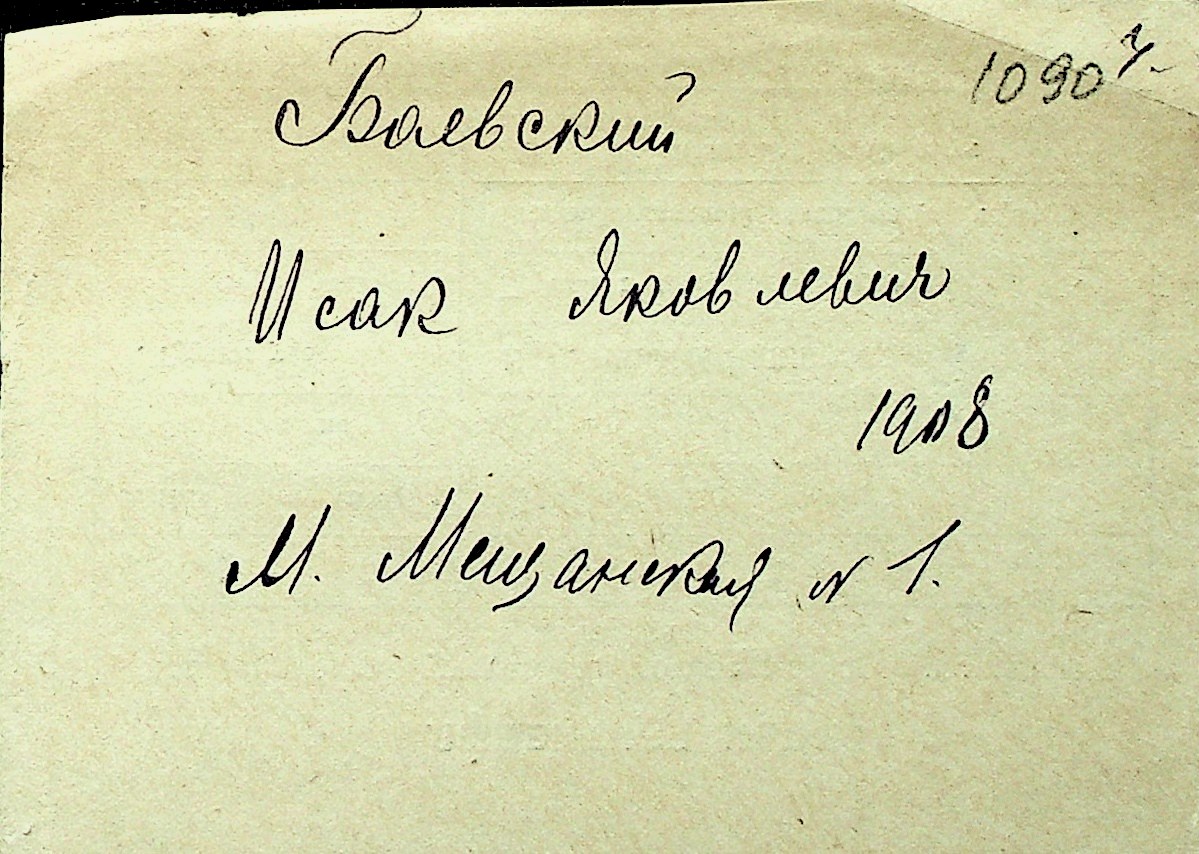 1090 ч.
Баевский
Исак Яковлевич
1908
М. Мещанская № 1.